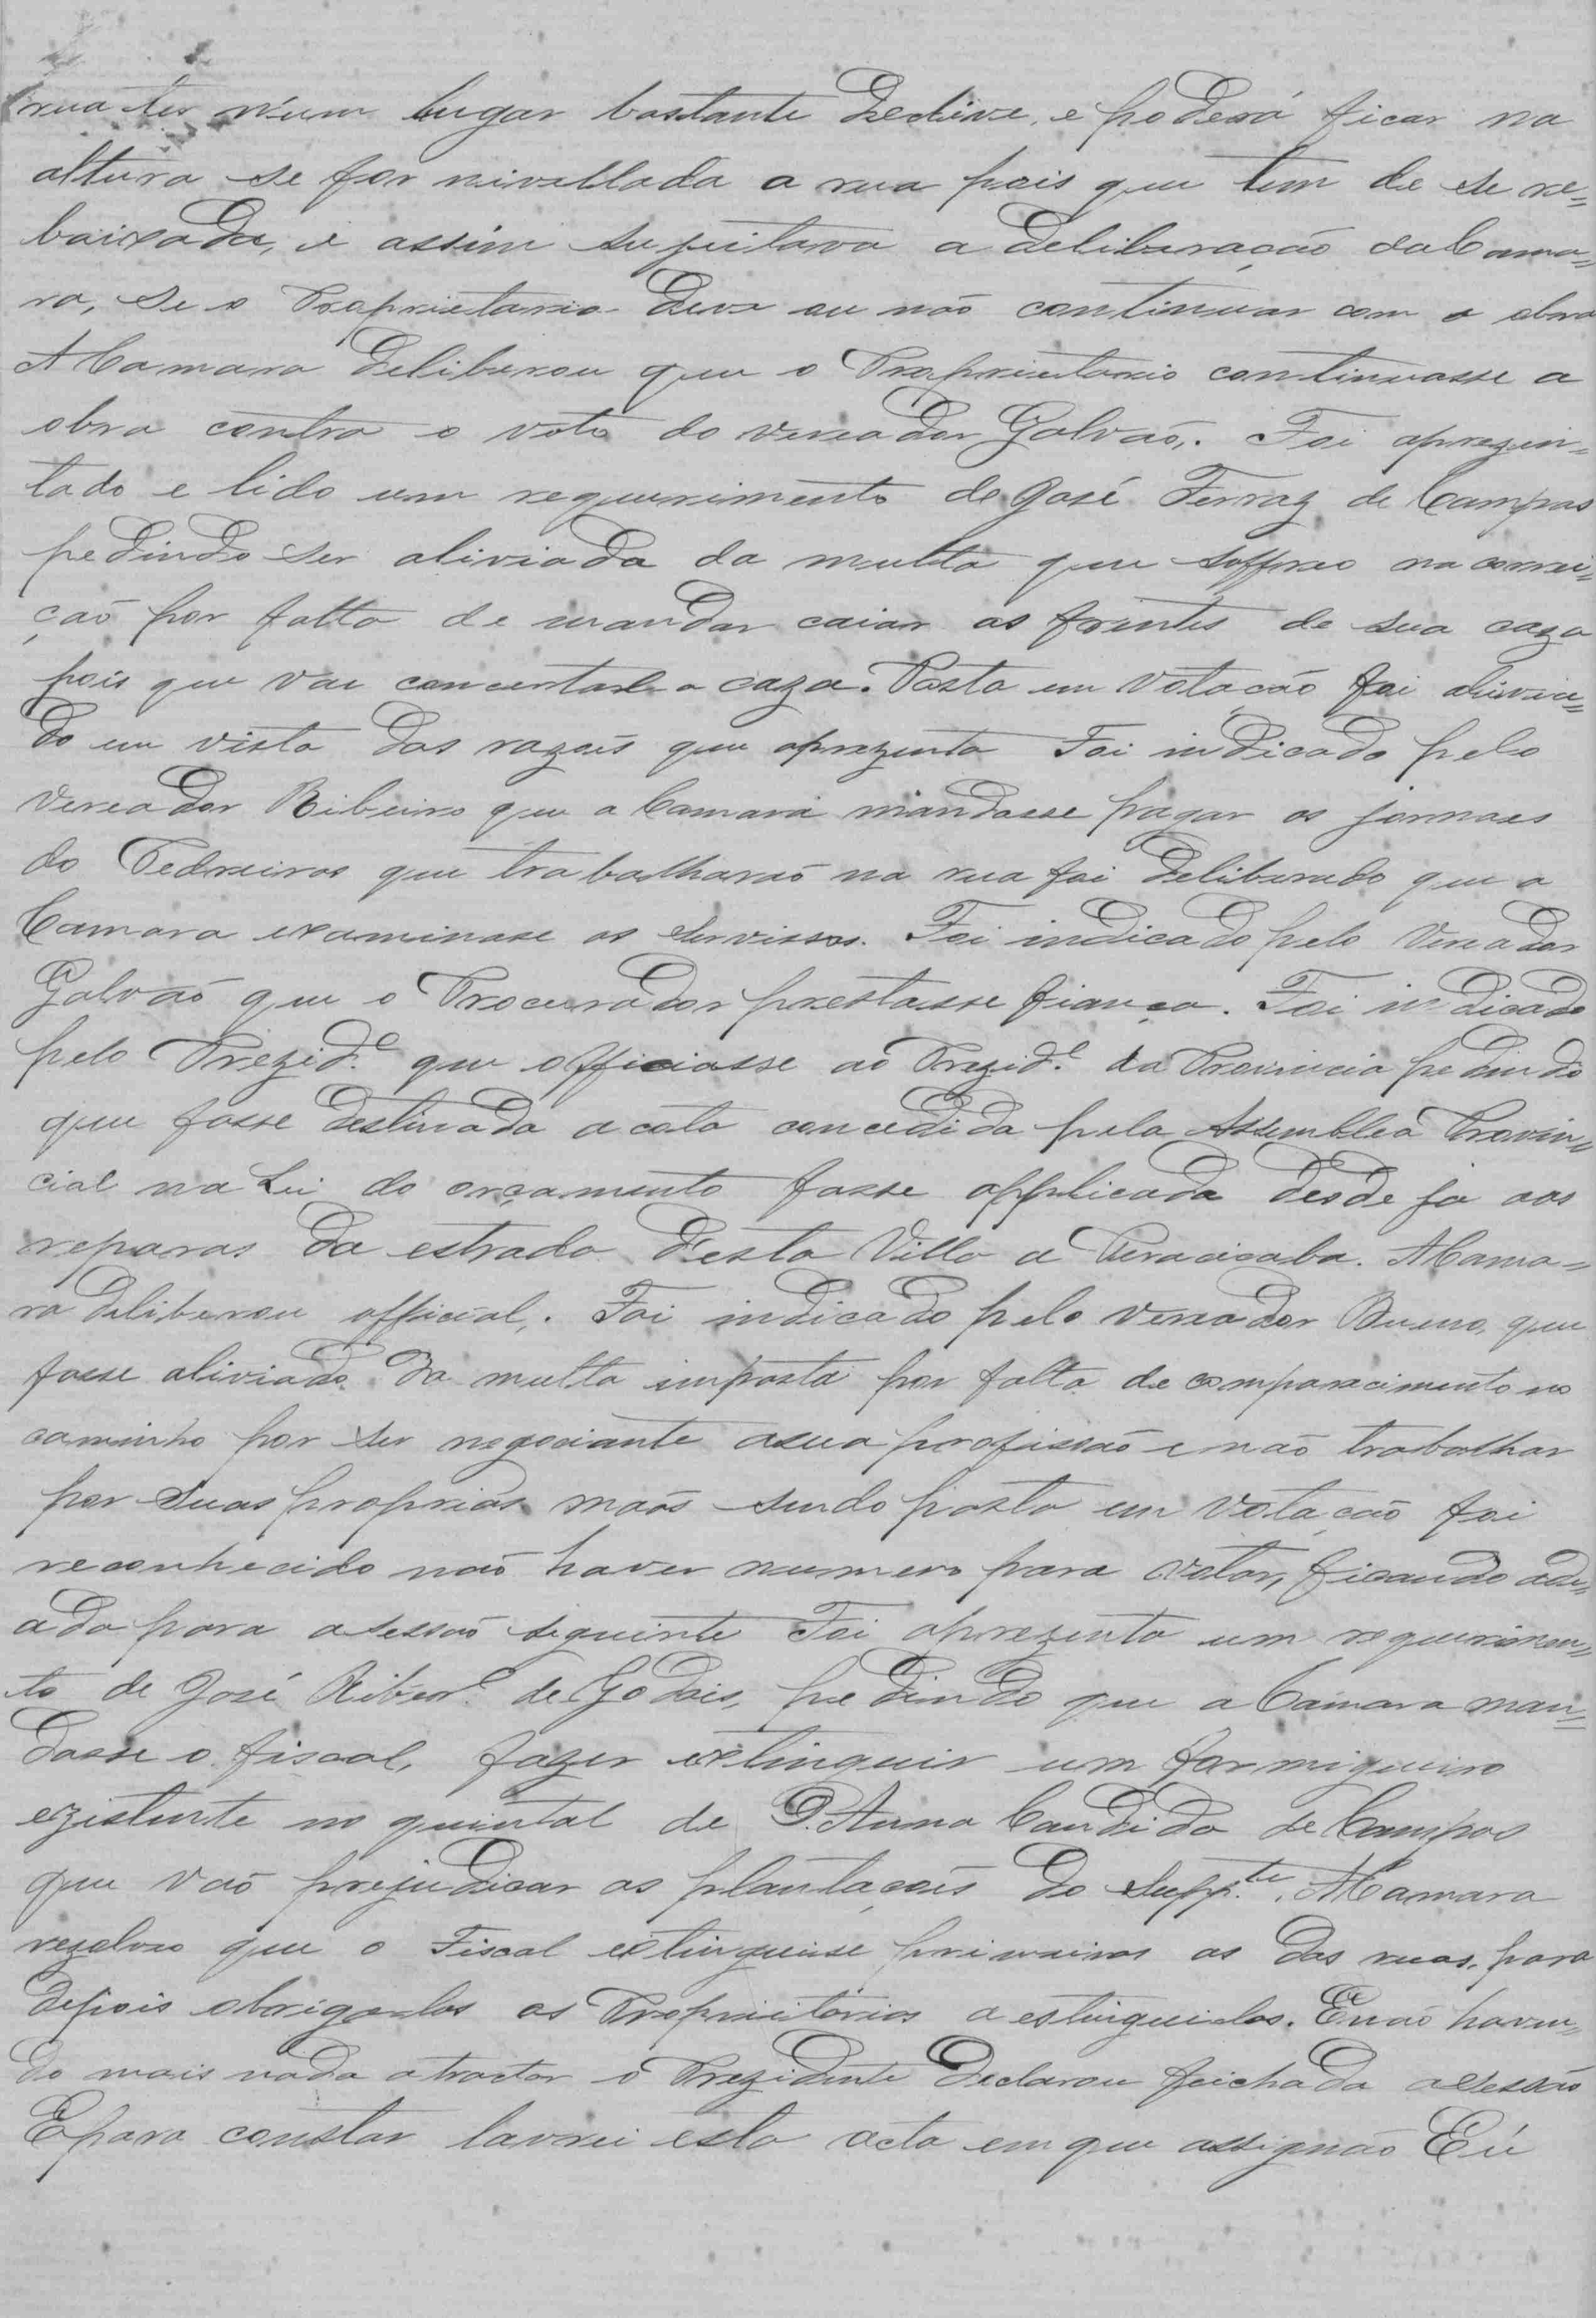 rua ter n'um lugar bastante declive, e poderá ficar na
altura se for nivellada a rua pois que tem de se re=
baixada, e assim sugeitava a deliberação da Cama=
ra, se o Proprietario deve ou não continuar com a obra
A Camara deliberou que o Proprietario continuasse a
obra contra o voto do vereador Galvaõ,. Foi aprezen=
tado e lido um requerimento de José Ferraz de Campos
pedindo ser aliviada da multa que soffreo na correi=
çaõ por falta de mandar caiar as frentes de sua caza
pois que vai concertar a caza. Posta em votação foi alivia=
do em vista das razoẽs que aprezenta Foi indicado pelo
vereador Ribeiro que a Camara mandasse pagar os jornaes
do Pedreiros que trabalharaõ na rua foi deliberado que a
Camara examinase os servissos. Foi indicado pelo Vereador
Galvaõ que o Procurador prestasse fiança. Foi indicado
pelo Prezid.e que officiasse ao Prezid.e da Provincia pedindo
que fosse destinada a cota concedida pela Assemblea Provin=
cial na Lei do orçamento fosse applicada desde ja aos
reparos da estrada d'esta Villa a Peracicaba. A Cama=
ra deliberou official,. Foi indicado pelo vereador Bueno, que
fosse aliviado da multa imposta por falta de comparecimento no
caminho por ser negociante a sua profissaõ e naõ trabalhar
por suas proprias maõs sendo posta em votaçaõ foi
reconhecido naõ haver numero para votar, ficando adi=
ada para a sessaõ seguinte Foi aprezenta um requerimen=
to de José Riber.o de Godois, pedindo que a Camara man=
dasse o fiscal, fazer extinguir um formigueiro
ezistente no quintal de D. Anna Candida de Campos
que vaõ prejudicar as plantaçoẽs do Supp.te, A Camara
rezolveo que o Fiscal extinguise primeiros os das ruas, para
depois obrigalos os Proprietarios a estinguilos. E naõ haven=
do mais nada a tractar o Prezidente declarou feichada a sessaõ
E para constar lavrei esta acta em que assignaõ Eú